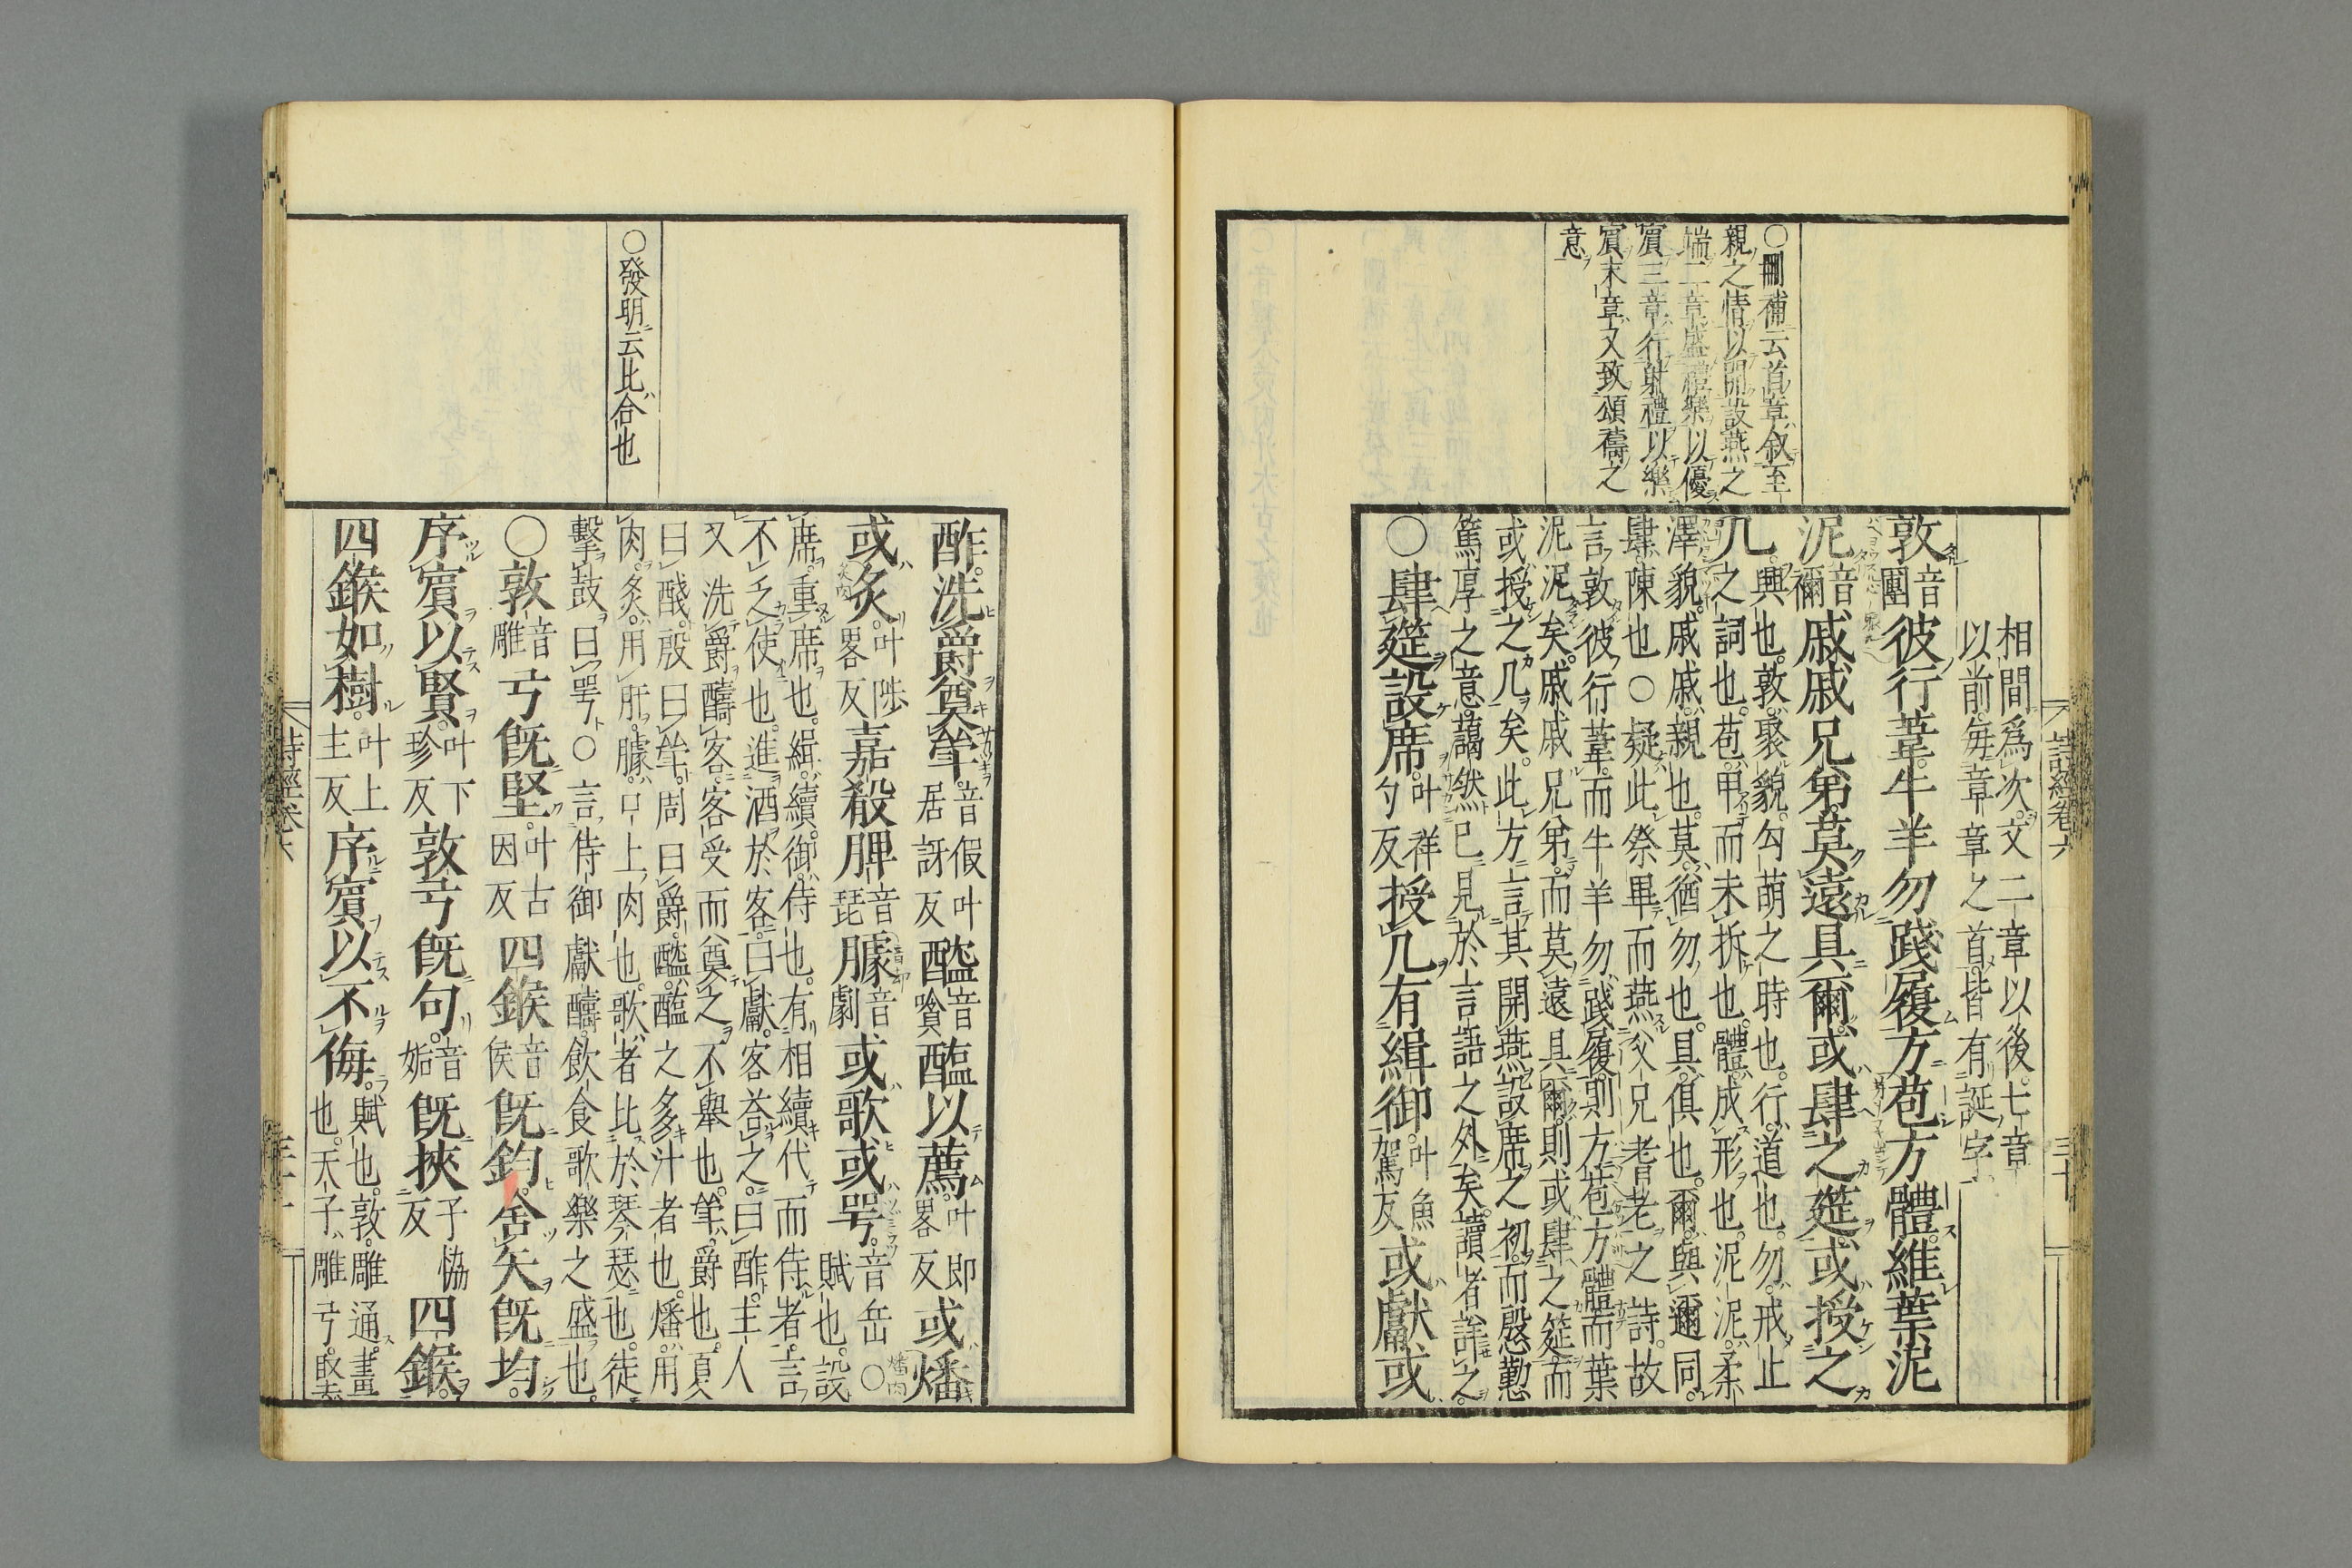 〇刪補云首章敘至
親之情以開設燕之
端二章盛禮樂以優
賓三章行射禮以樂
賓末章又致頌禱之
意
詩經卷六
三十
相間爲次又二章以後七章
以前每章章之首皆有誕字
敦音團彼行葦牛羊勿踐履方苞方體維葉泥
泥音禰戚戚兄弟莫遠具爾或肆之筵或授之
几興也敦聚貌勾萌之時也行道也勿戒止
之詞也苞甲而未拆也體成形也泥泥柔
澤貌戚戚親也莫猶勿也具俱也爾與邇同
肆陳也〇疑此祭畢而燕父兄耆老之詩故
言敦彼行葦而牛羊勿踐履則方苞方體而葉
泥泥矣戚戚兄弟而莫遠具爾則或肆之筵而
或授之几矣此方言其開燕設席之初而慇懃
篤厚之意藹然已見於言語之外矣讀者詳之
〇肆筵設席叶祥勺反授几有緝御叶魚駕反或獻或
〇發明云比合也
酢洗爵奠斝音假叶居訝反醓音噉醢以薦叶即畧反或燔
或炙叶陟畧反嘉殽脾音琵臄音劇或歌或咢音岳〇賦也設
席重席也緝續御侍也有相續代而侍者言
不乏使也進酒於客曰獻客荅之曰酢主人
又洗爵醻客客受而奠之不舉也斝爵也夏
曰醆殷曰斝周曰爵醓醢之多汁者也燔用
肉炙用肝臄口上肉也歌者比於琴瑟也徒
擊鼓曰咢〇言侍御獻醻飲食歌樂之盛也
〇敦音雕弓旣堅叶古因反四鍭音侯旣鈞舍矢旣均
序賓以賢叶下珍反敦弓旣句音姤旣挾子協反四鍭
四鍭如樹叶上主反序賓以不侮賦也敦雕通畫也天子雕弓
詩經卷六
三十一